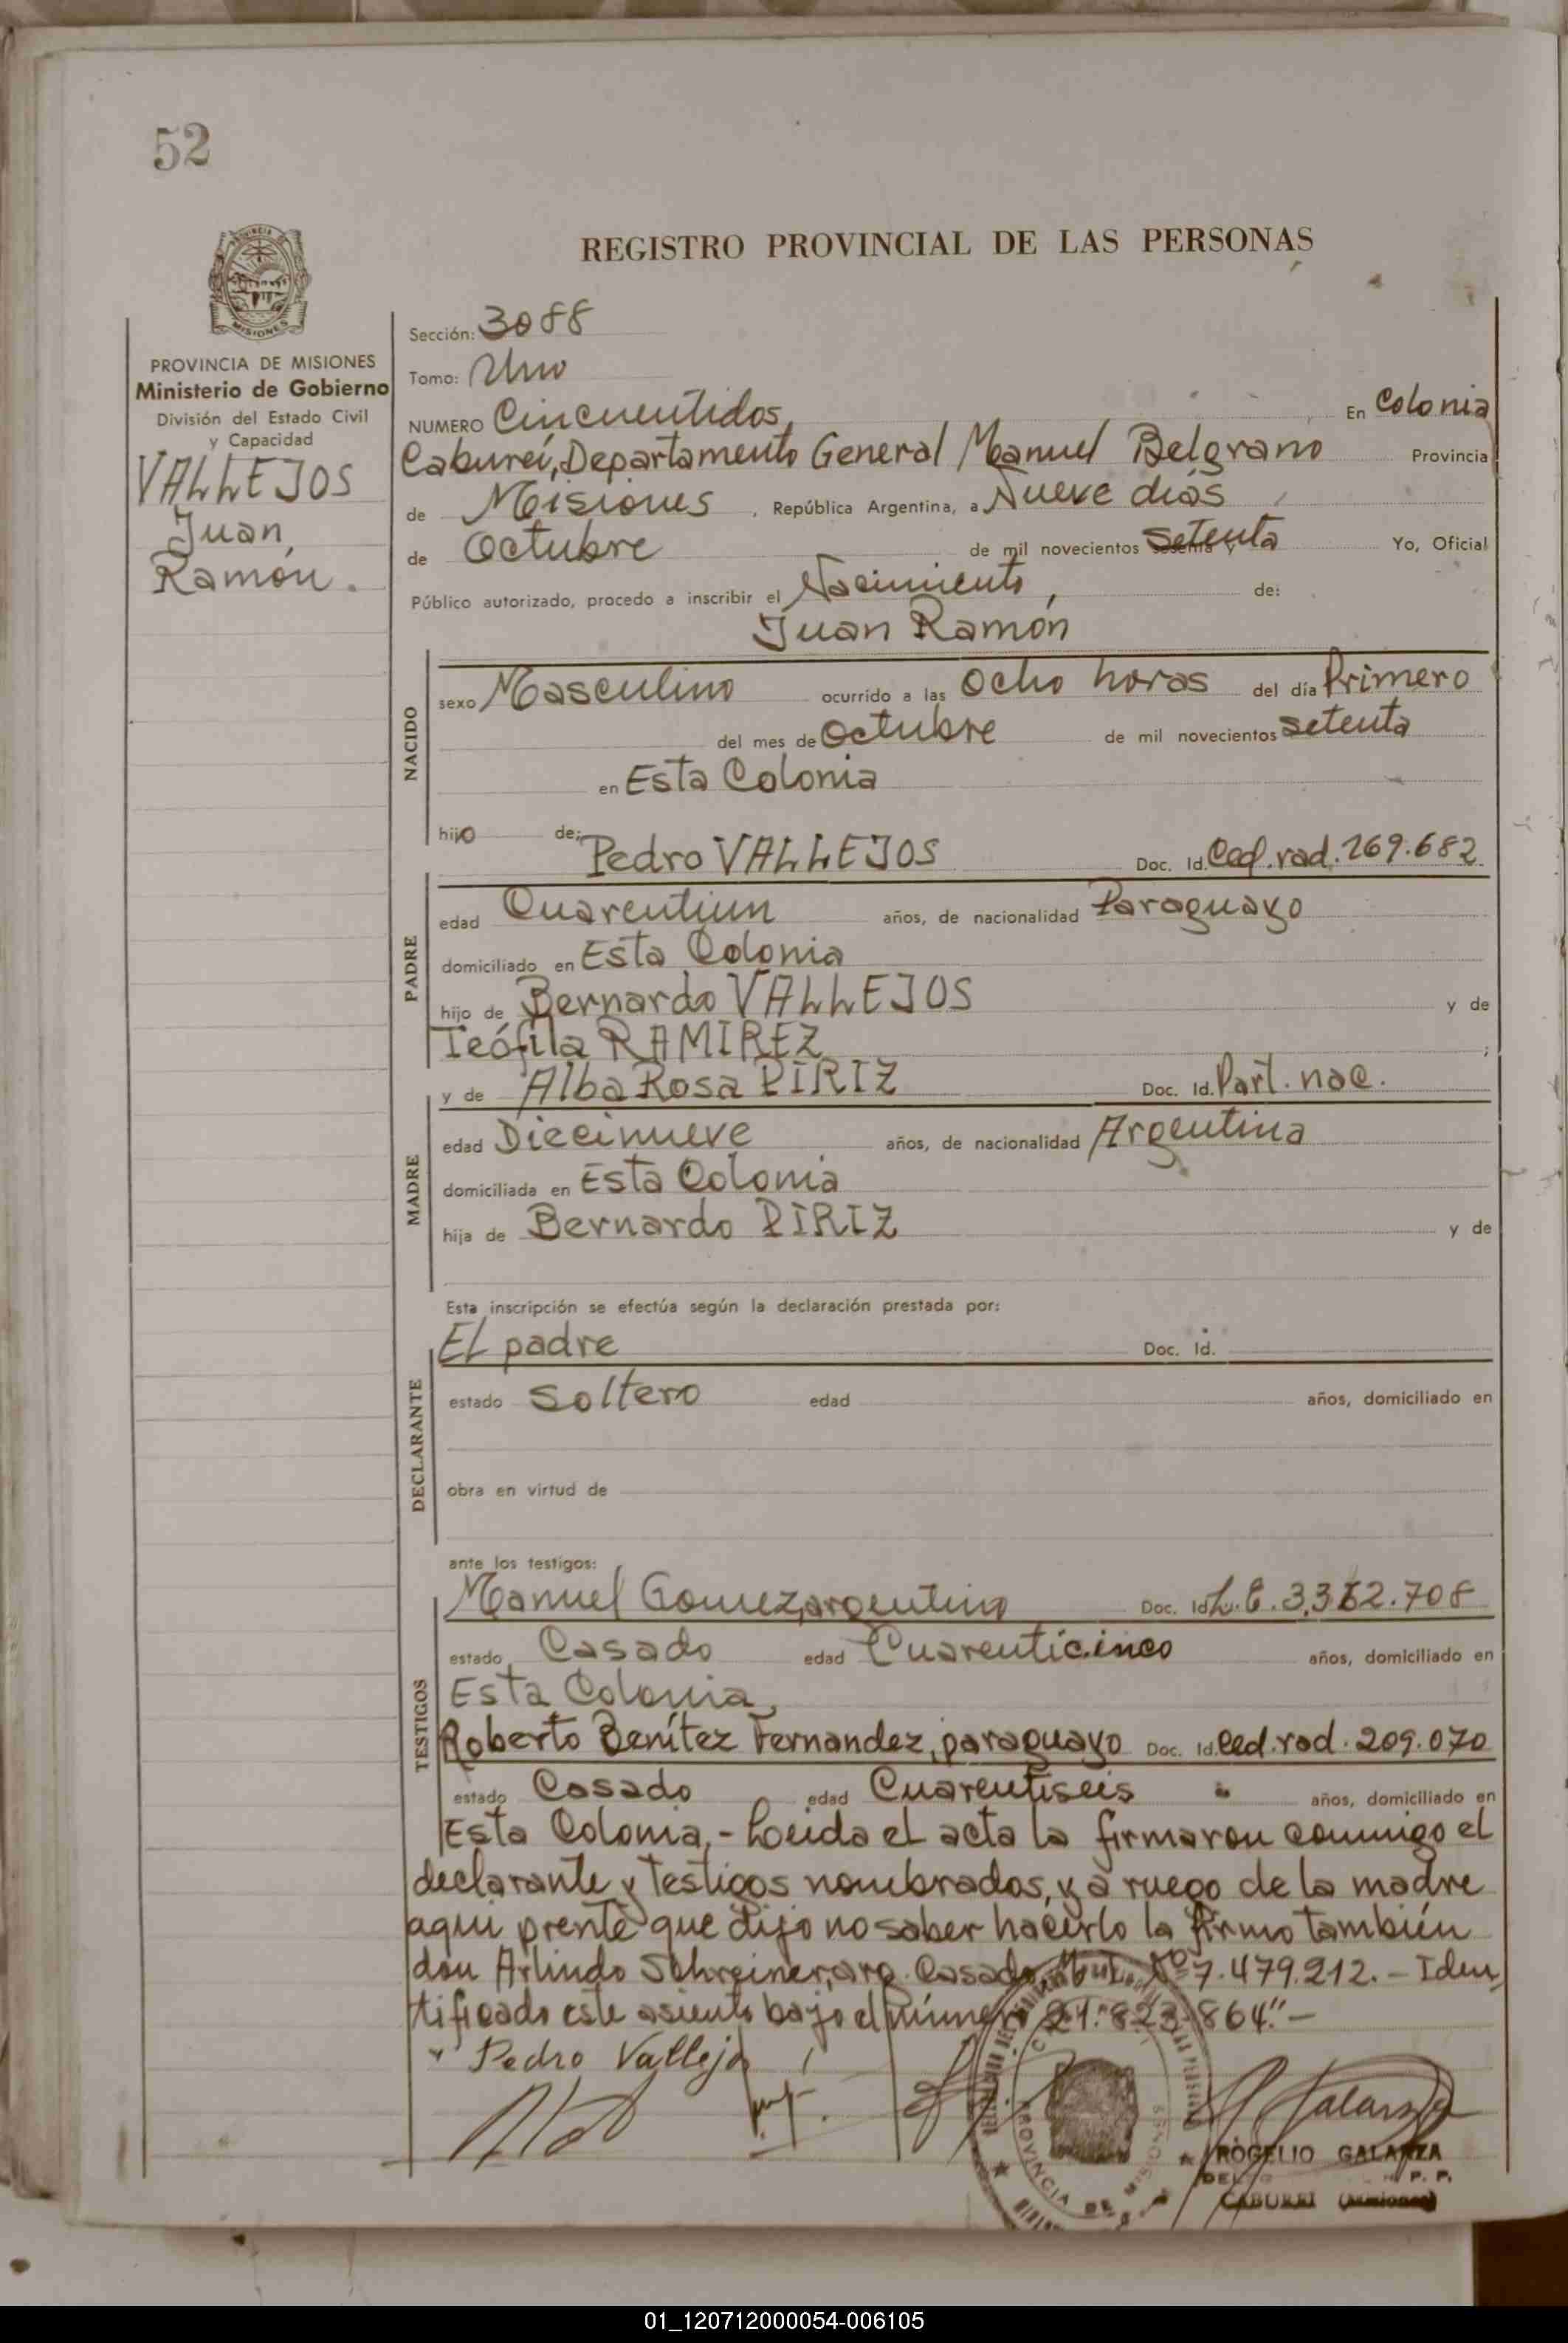 52
REGISTRO PROVINCIAL DE LAS PERSONAS
PROVINCIA DE MISIONES
Ministerio de Gobierno
División del Estado Civil
y Capacidad
VALLEJOS
Juan
Ramón.
Sección: 3088
Tomo: Uno
NUMERO Cincuentidos, En Colonia
Caburei, Departamento General Manuel Belgrano Provincia
de Misiones, República Argentina, a Nueve dias
de Octubre de mil novecientos sesenta y setenta Yo, Oficial
Público autorizado, procedo a inscribir el Nacimiento, de:
Juan Ramón
NACIDO
sexo Masculino ocurrido a las Ocho horas del día Primero
del mes de Octubre de mil novecientos setenta
en Esta Colonia
hijo de:
Pedro VALLEJOS Doc. Id. Ced. rad. 269.682
PADRE
edad Cuarentiun años, de nacionalidad Paraguayo
domiciliado en Esta Colonia
hijo de Bernardo VALLEJOS y de
Teófila RAMIREZ ;
y de Alba Rosa PIRIZ Doc. Id. Part. nac.
MADRE
edad Diecinueve años, de nacionalidad Argentina
domiciliada en Esta Colonia
hija de Bernardo PIRIZ y de
Esta inscripción se efectúa según la declaración prestada por:
El padre Doc. Id.
DECLARANTE
estado Soltero edad años, domiciliado en
obra en virtud de
ante los testigos:
Manuel Gomez, argentino Doc. Id L.E. 3.362.708
TESTIGOS
estado Casado edad Cuarenticinco años, domiciliado en
Esta Colonia,
Roberto Benítez Fernandez, paraguayo Doc. Id. Ced. rad. 209.070
estado Casado edad Cuarentiseis años, domiciliado en
Esta Colonia,- Leida el acta la firmaron conmigo el
declarante y testigos nombrados, y a ruego de la madre
aqui prente que dijo no saber hacerlo la firmo también
don Arlindo Schreiner, arg. Casado, Nº 7.479.212.- Iden
tificado este asiento bajo el número 21.823.864."-
Pedro Vallejo
PROVINCIA DE MISIONES
ROGELIO GALARZA
CABUREI (Misiones)
01_120712000054-006105